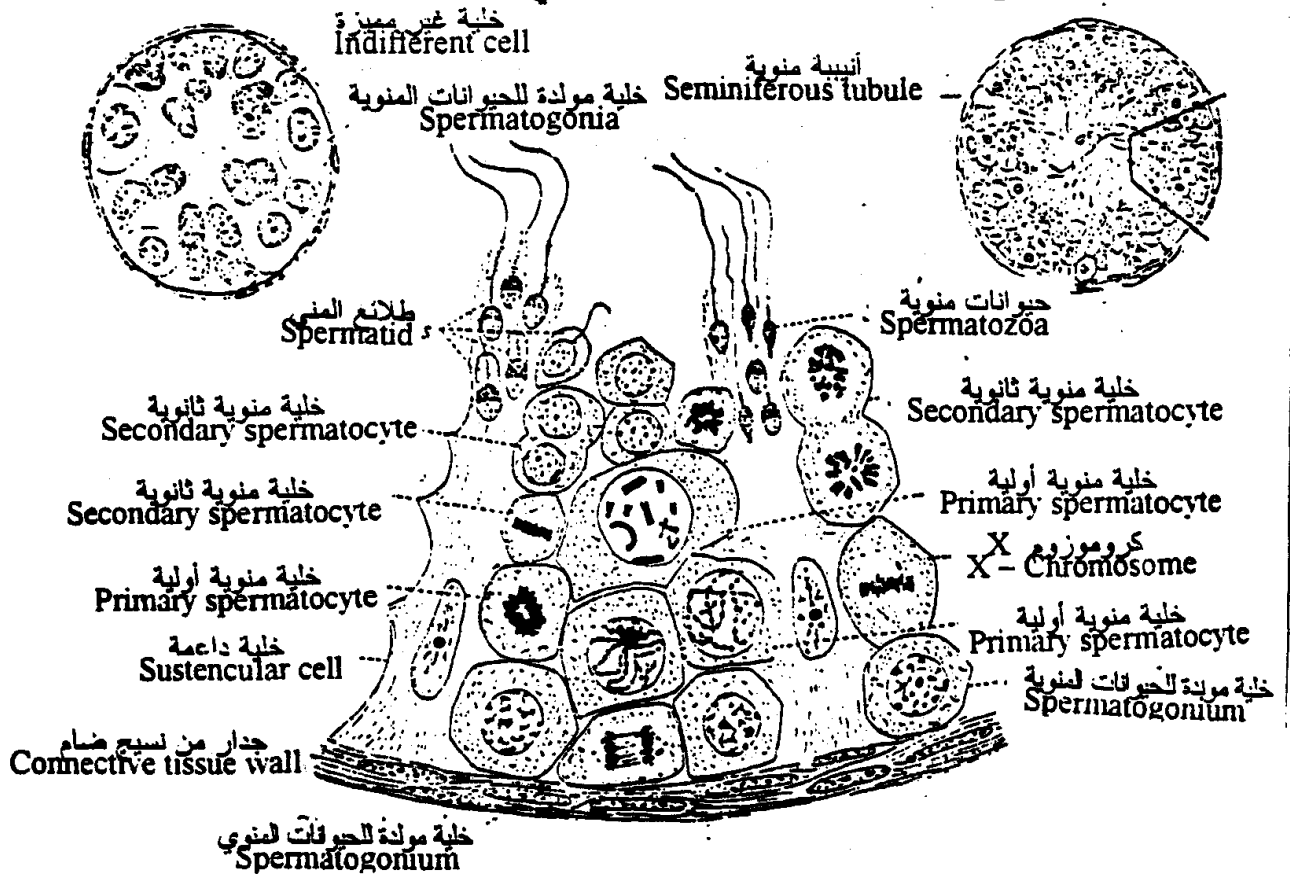 خلية غير مميزة
Indifferent cell
خلية مولدة للحيوانات المنوية
Spermatogonia
أنيبيبة منوية
Seminiferous tubule
طلائع المني
Spermatid s
حيوانات منوية
Spermatozoa
خلية منوية ثانوية
Secondary spermatocyte
خلية منوية ثانوية
Secondary spermatocyte
خلية منوية ثانوية
Secondary spermatocyte
خلية منوية أولية
Primary spermatocyte
كروموزوم X
X - Chromosome
خلية منوية أولية
Primary spermatocyte
خلية منوية أولية
Primary spermatocyte
خلية داعمة
Sustencular cell
خلية مولدة للحيوانات المنوية
Spermatogonium
جدار من نسيج ضام
Connective tissue wall
خلية مولدة للحيوانات المنوي
Spermatogonium